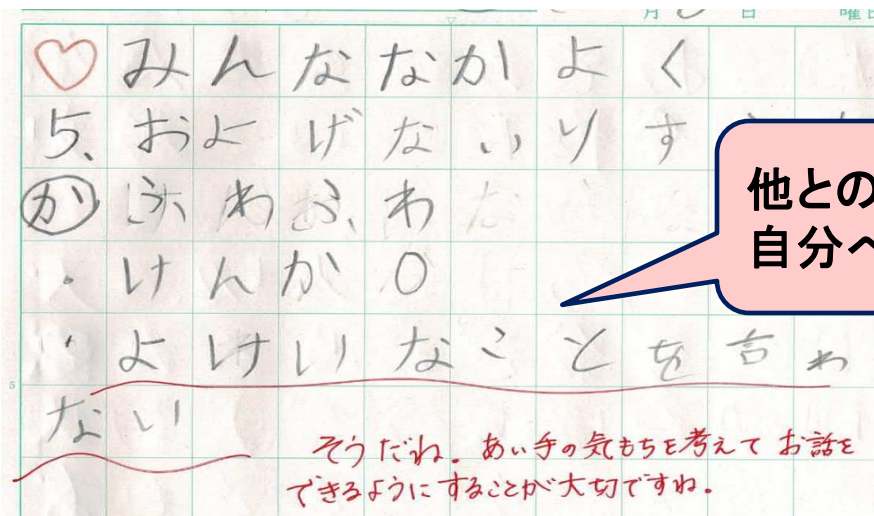 月 日 曜日
♡みんななかよく
5、およげないりす
か ふわふわ
・けんか0
・よけいなことを言わ
ない
他との
自分へ
そうだね。あい手の気もちを考えてお話を
できるようにすることが大切ですね。